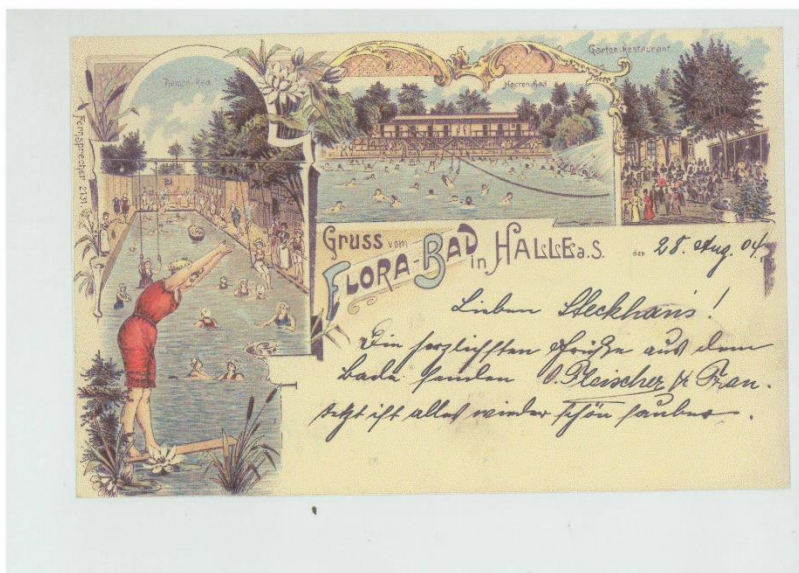 Damen-Bad
Herren-Bad
Garten-Restaurant
Fernsprecher 2131.
Gruss vom
FLORA-BAD in HALLE a.S. den 28. Aug. 04.
Lieben Steckhans!
Die herzlichsten Grüße aus dem
Bade senden O. Fleischer & Frau.
Jetzt ist alles wieder schön sauber.